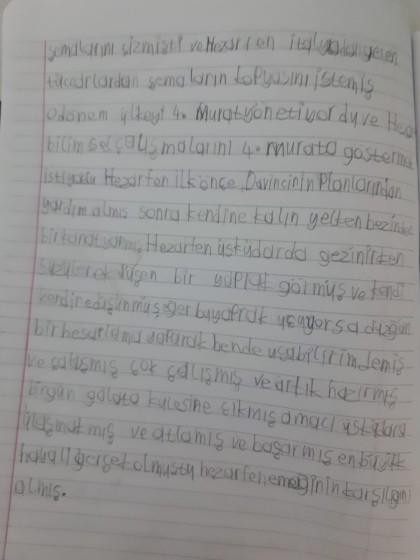 şemalarını çizmişti ve Hezarfen italyadan gelen
tüccarlardan şemaların kopyasını istemiş
O dönem ülkeyi 4. Murat yönetiyordu ve Heza
bilimsel çalışmalarını 4. murata gösterme
istiyordu Hezarfen ilk önce Davincinin Planlarından
yardım almış sonra kendine kalın yelken bezinde
bir kanat yapmış, Hezarfen üsküdarda gezinirken
süzülerek düşen bir yaprak görmüş ve kendi
kendine düşünmüş eger bu yaprak uçuyorsa doğru
bir hesaplama yaparak bende uçabilirim demiş
ve çalışmış çok çalışmış ve artık hazırmış
birgün galata kulesine çıkmış amacı üsküdara
ulaşmakmış ve atlamış ve başarmış en büyük
hayali gerçek olmuştu hezarfen emeğinin karşılığını
almış.